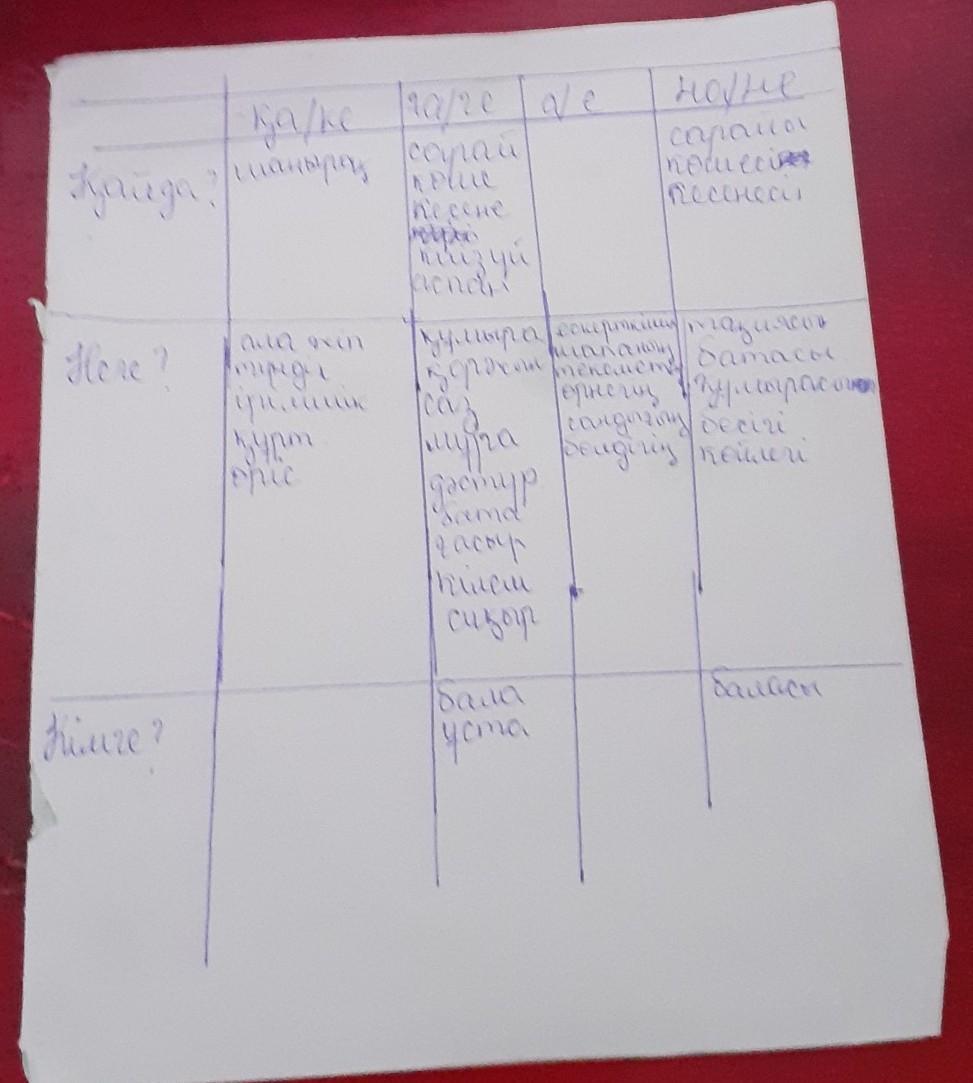 қа/ке
ға/ге
а/е
на/не
Қайда?
шаңырақ
сарай
көше
кесене
киізүй
аспан
сарайы
көшесі
кесенесі
Неге?
ала жіп
тиреді
ірімшік
құрт
өріс
құмыра
қоржын
саз
мұра
дәстүр
бата
ғасыр
кілем
сиқыр
ескерткішің
шапаның
өрнегің
сандығың
белдігің
батасы
құмырасы
бесігі
көйлегі
Кімге?
бала
ұста
баласы